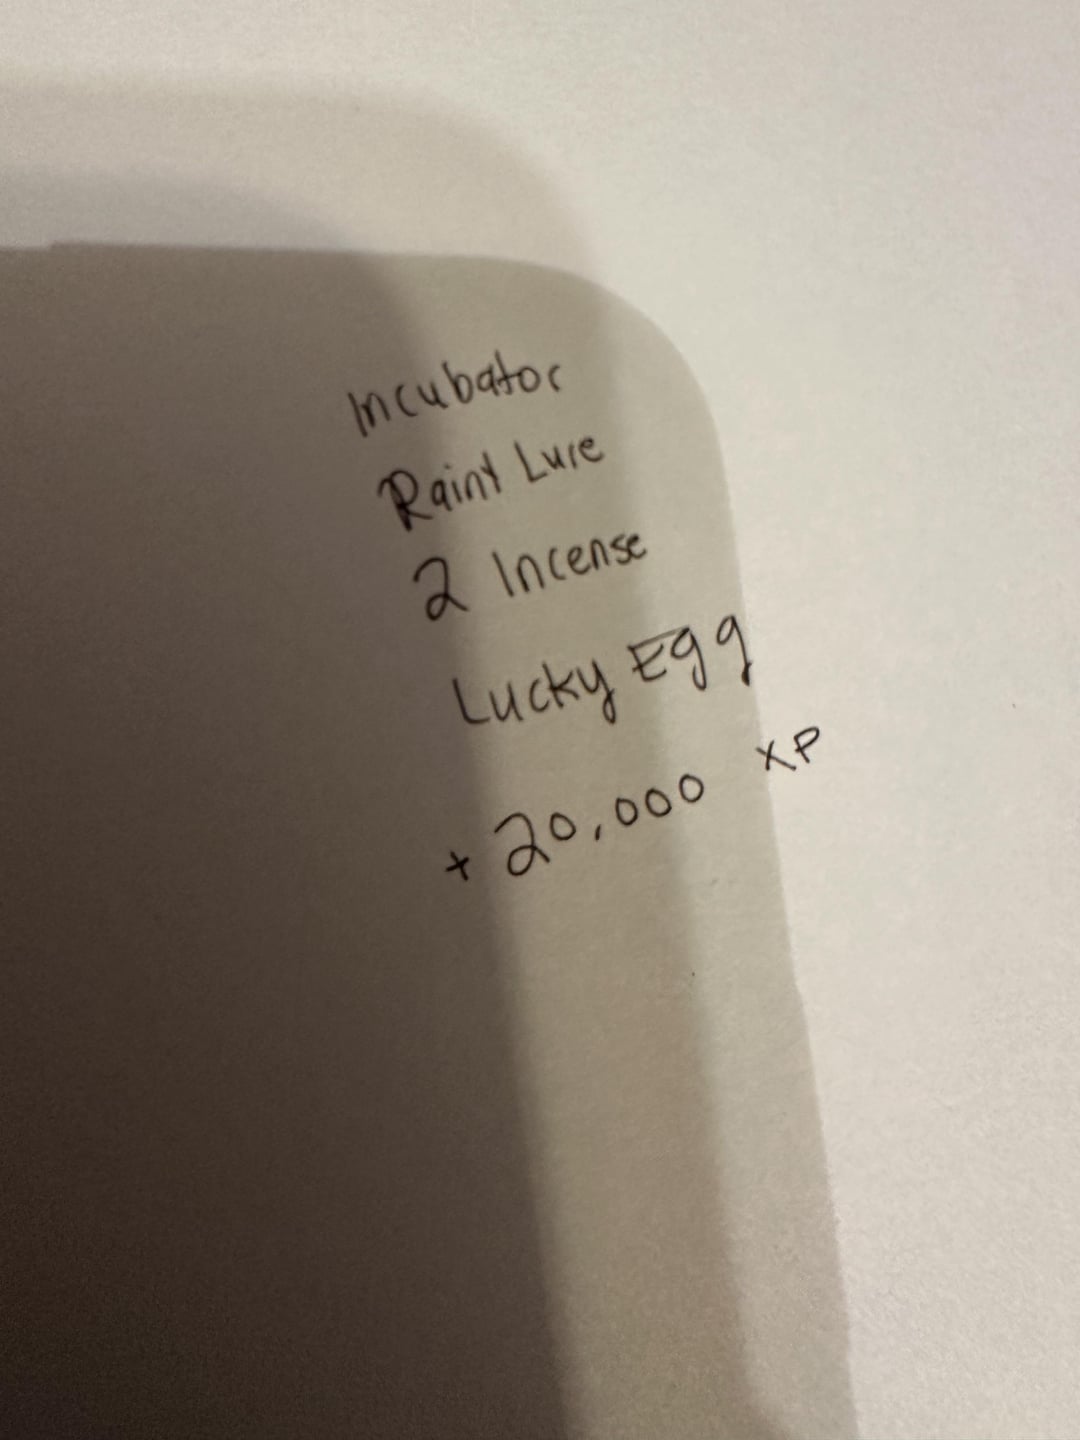 Incubator
Rainy Lure
2 Incense
Lucky Egg
+ 20,000 XP